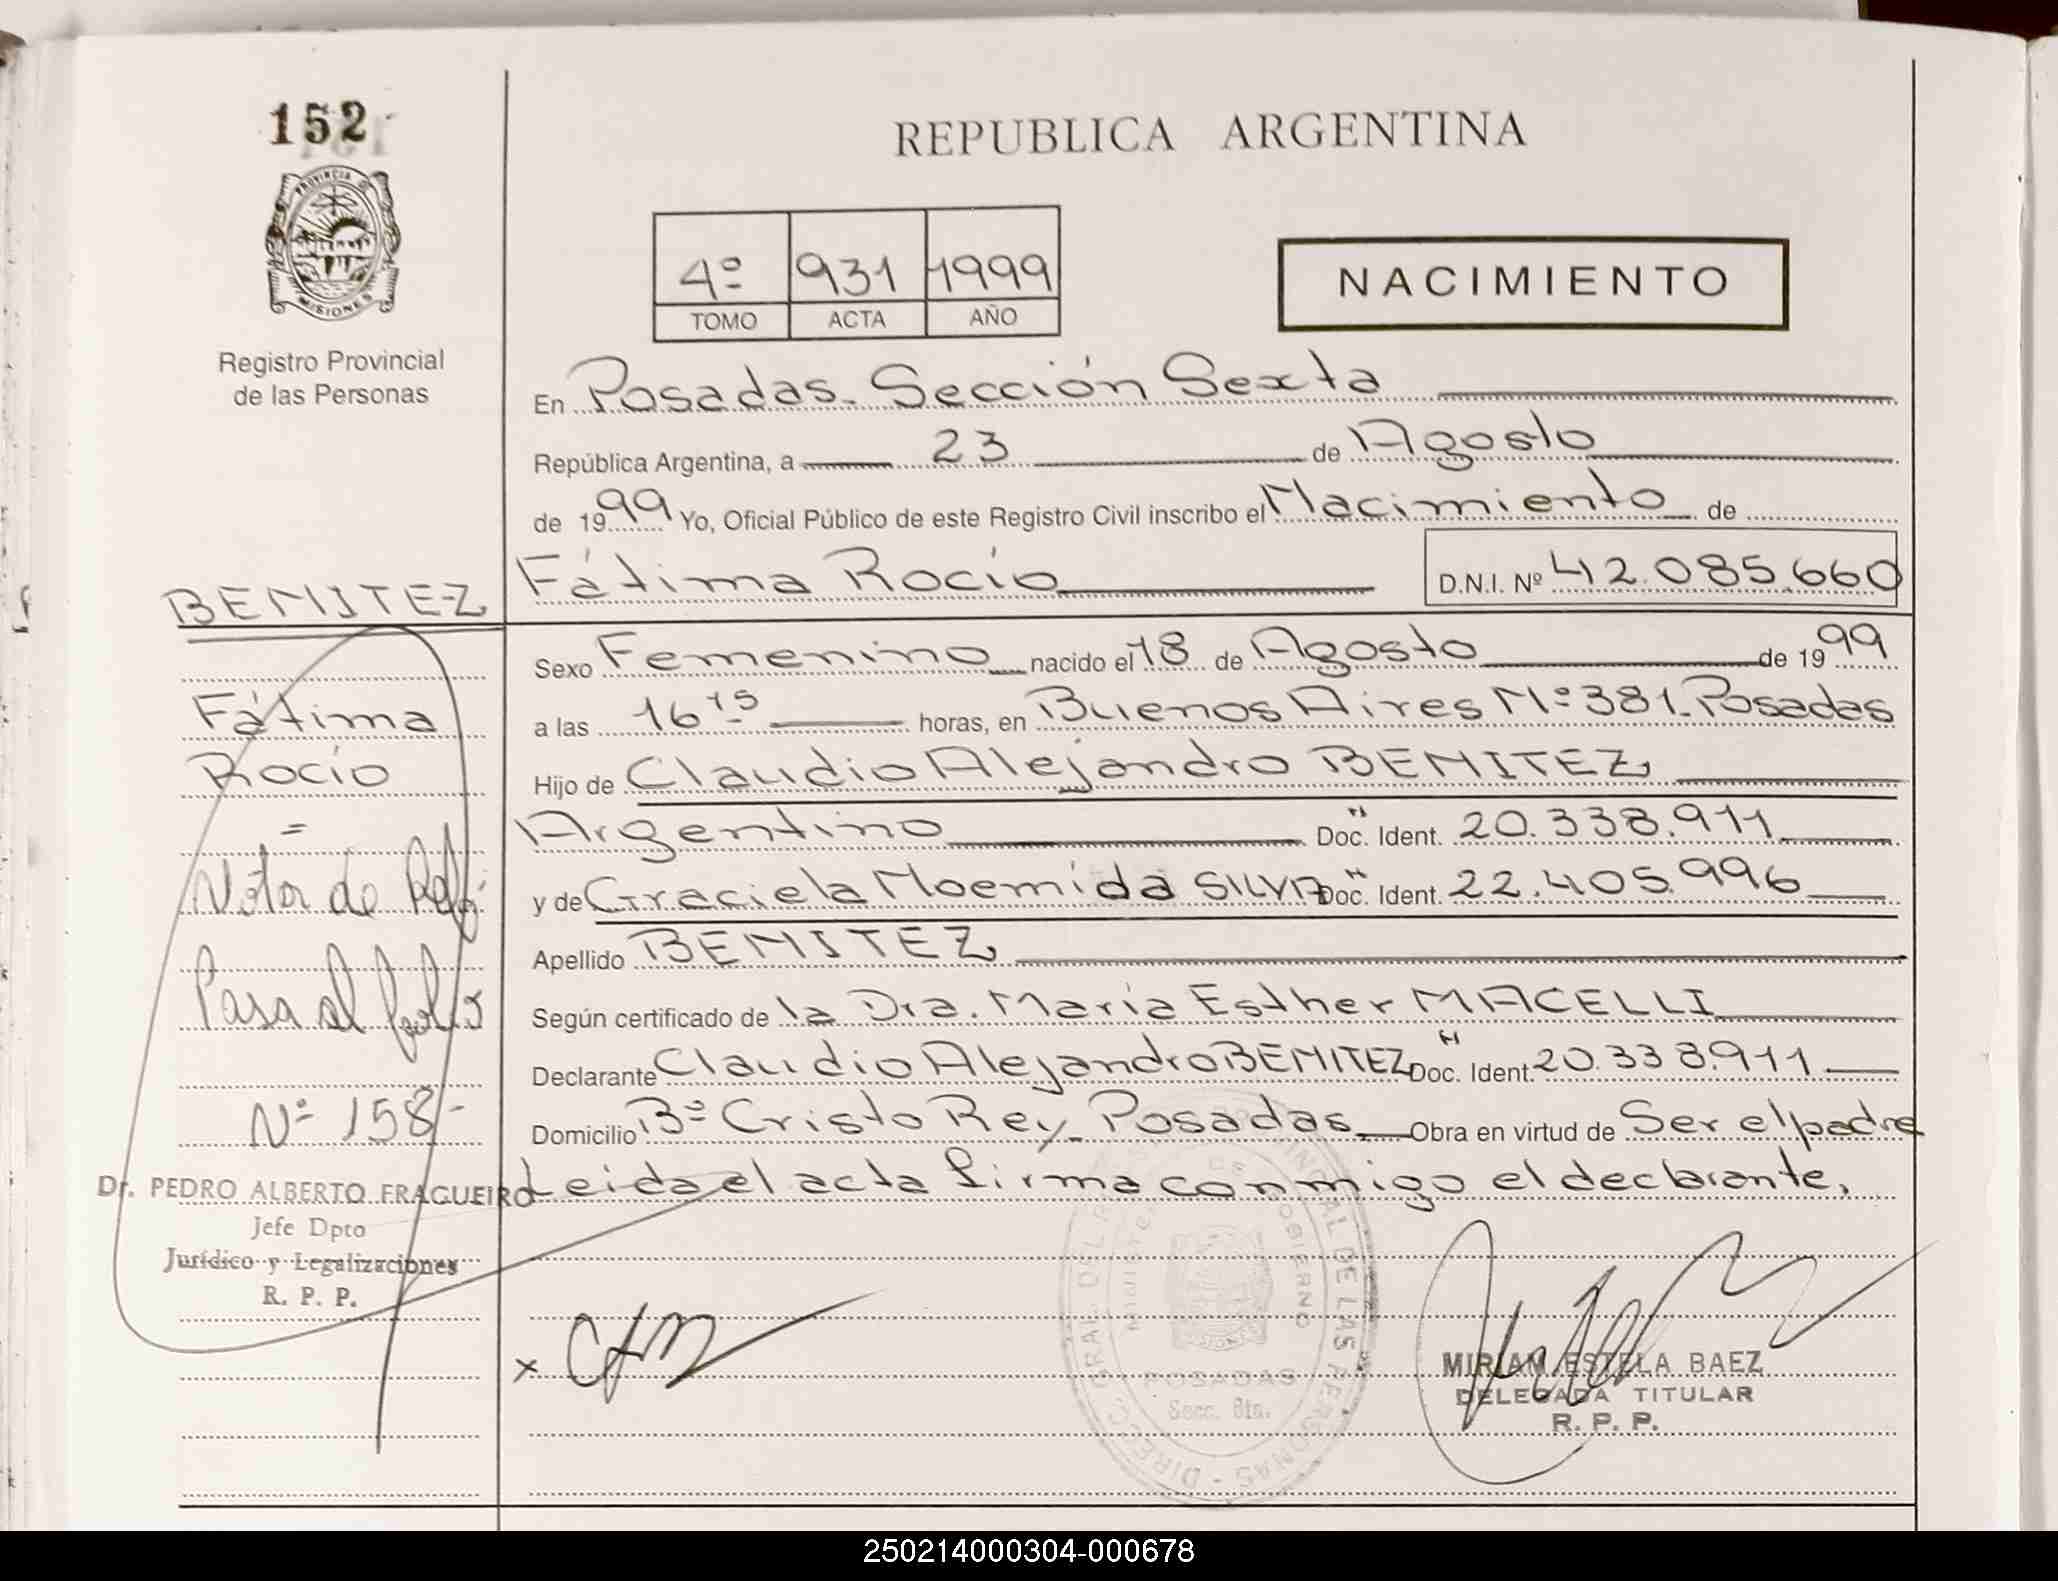 152
PROVINCIA DE
MISIONES
Registro Provincial
de las Personas
REPUBLICA ARGENTINA
4º 931 1999
TOMO ACTA AÑO
NACIMIENTO
En Posadas. Sección Sexta
República Argentina, a 23 de Agosto
de 1999 Yo, Oficial Público de este Registro Civil inscribo el Nacimiento de
Fátima Rocío D.N.I. Nº 42.085.660
BENITEZ
Fátima
Rocío
=
Nota de Ref.
Pasa al folio
Nº 158-
Dr. PEDRO ALBERTO FRAGUEIRO
Jefe Dpto
Jurídico y Legalizaciones
R. P. P.
Sexo Femenino nacido el 18 de Agosto de 1999
a las 16 15 horas, en Buenos Aires Nº 381. Posadas
Hijo de Claudio Alejandro BENITEZ
Argentino Doc. Ident. 20.338.911
y de Graciela Noemida SILVA Doc. Ident. 22.405.996
Apellido BENITEZ
Según certificado de la Dra. María Esther MACELLI
Declarante Claudio Alejandro BENITEZ Doc. Ident. 20.338.911
Domicilio Bº Cristo Rey. Posadas. Obra en virtud de Ser el padre
Leida el acta firma conmigo el declarante.
DIRECC. GRAL. DEL PROVINCIAL DE LAS PERSONAS
GOBIERNO
POSADAS
Secc. 6ta.
x
MIRIAM ESTELA BAEZ
DELEGADA TITULAR
R. P. P.
250214000304-000678